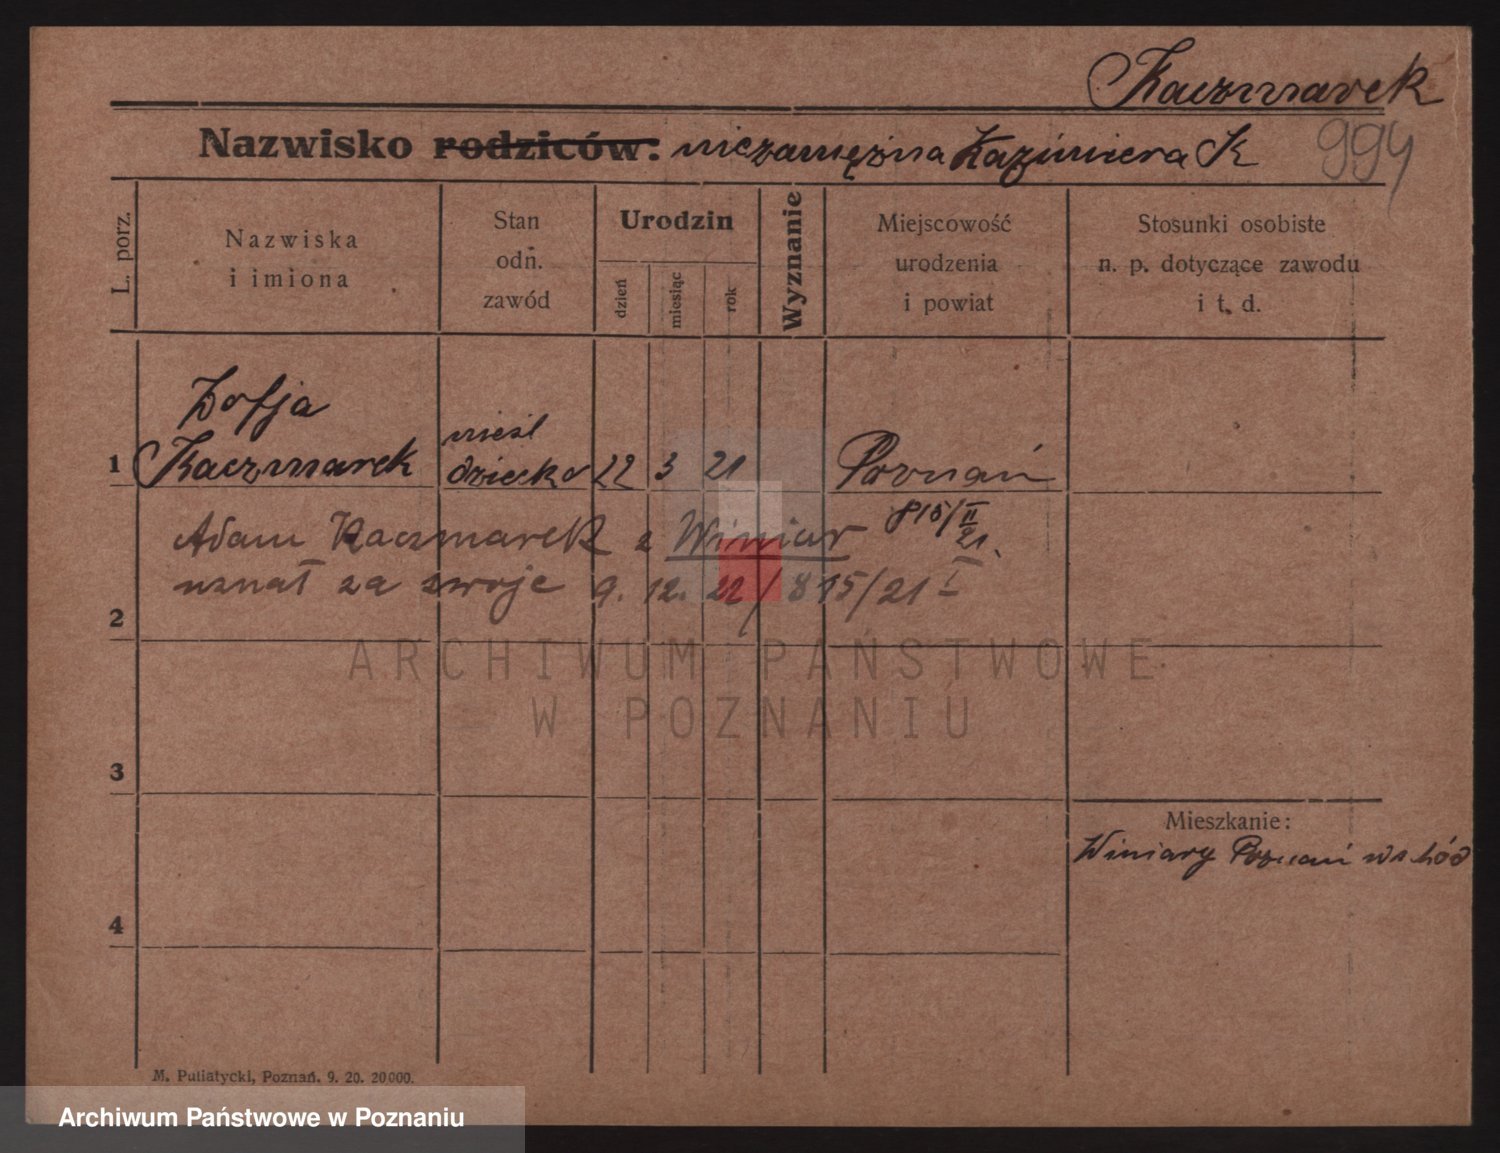 Kaczmarek
Nazwisko rodziców: niezamężna Kazimiera K
994
L. porz.
Nazwiska
i imiona
Stan
odn.
zawód
Urodzin
dzień
miesiąc
rok
Wyznanie
Miejscowość
urodzenia
i powiat
Stosunki osobiste
n. p. dotyczące zawodu
i t. d.
Zofja
1 Kaczmarek nieśl dziecko 22 3 21 Poznań
815/II 21.
Adam Kaczmarek z Winiar
uznał za swoje 9. 12. 22/815/21 I
2
ARCHIWUM PAŃSTWOWE
W POZNANIU
3
Mieszkanie:
Winiary Poznań wschód
4
M. Putiatycki, Poznań. 9. 20. 20000.
Archiwum Państwowe w Poznaniu